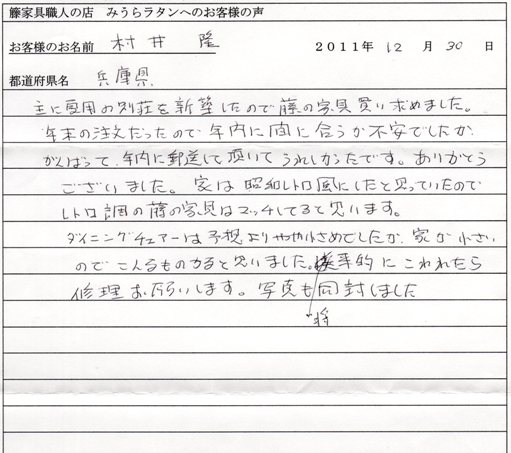 籐家具職人の店 みうらラタンへのお客様の声
お客様のお名前 村井 隆 2011年 12 月 30 日
都道府県名 兵庫県
主に夏用の別荘を新築したので藤の家具買い求めました。
年末の注文だったので年内に間に合うか不安でしたが
がんばって、年内に郵送して頂いてうれしかったです。ありがとう
ございました。家は昭和レトロ風にしたと思っていたので
レトロ調の藤の家具はマッチしてると思います。
ダイニングチェアーは予想よりやや小さめでしたが、家が小さい
のでこんなものかなと思いました。将来的にこわれたら
修理お願いします。写真も同封しました